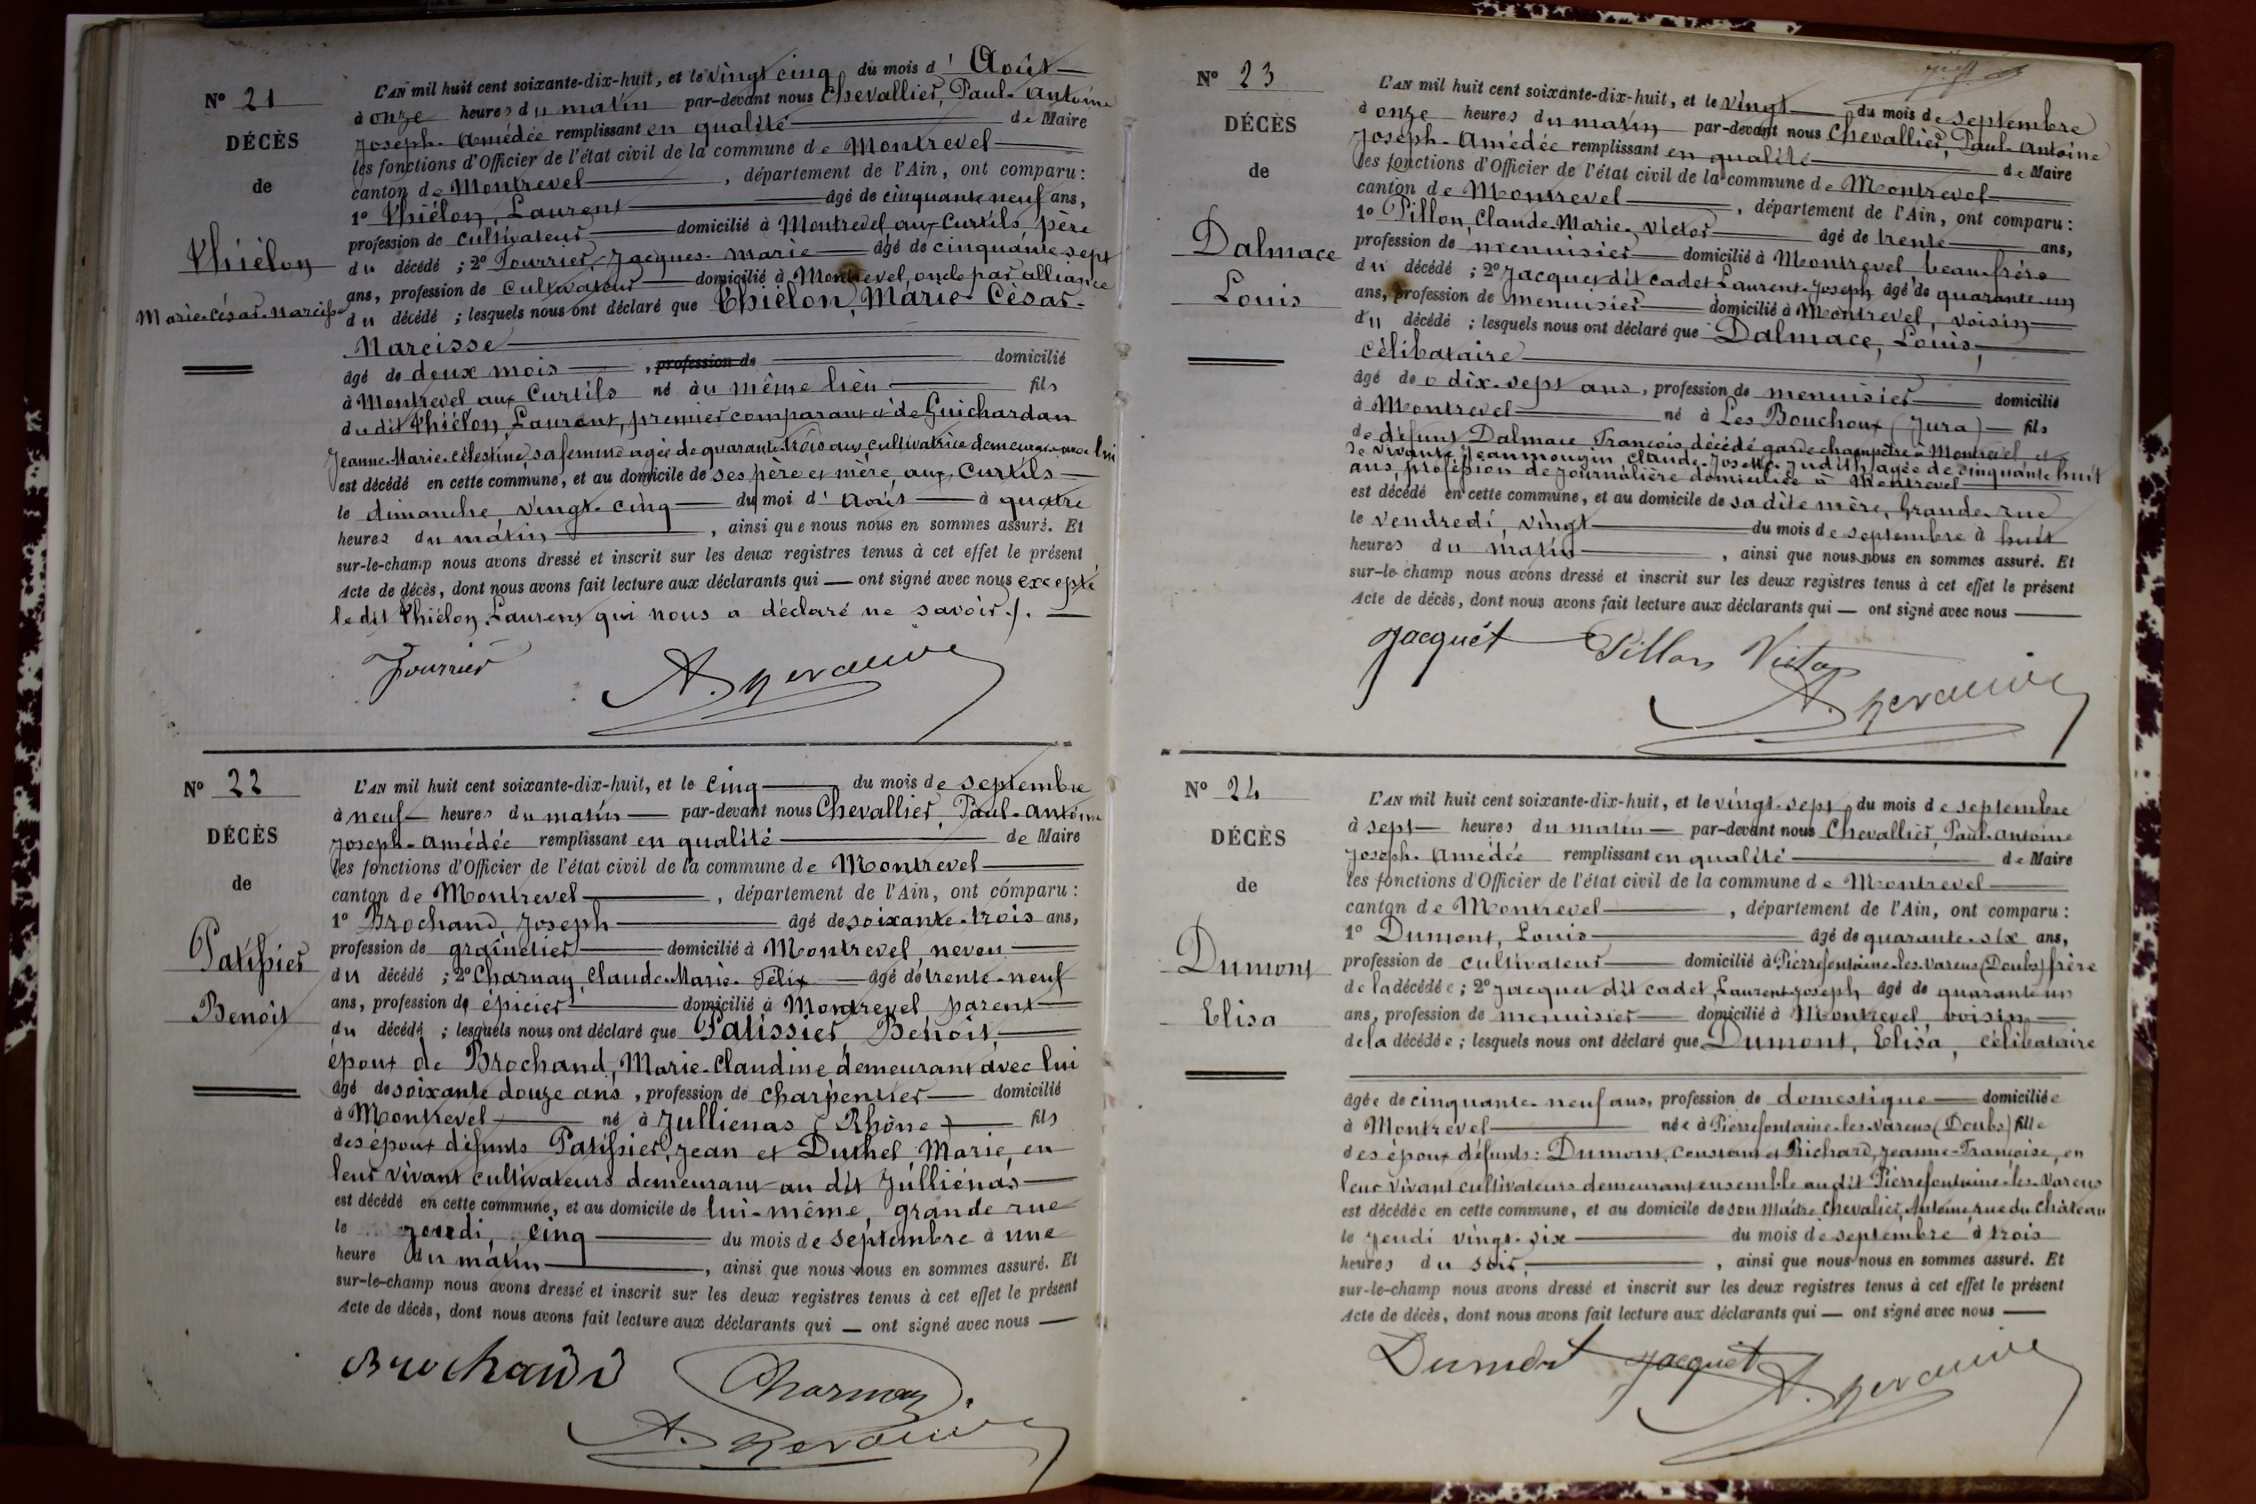 N° 21
DÉCÈS
de
Thiélon
Marie-César-Narcisse
L'AN mil huit cent soixante-dix-huit, et le vingt cinq du mois d'Août
à onze heures du matin par-devant nous Chevallier, Paul-Antoine
Joseph-Amédée remplissant en qualité de Maire
les fonctions d'Officier de l'état civil de la commune de Montrevel
canton de Montrevel, département de l'Ain, ont comparu :
1° Thiélon, Laurent âgé de cinquante neuf ans,
profession de cultivateur domicilié à Montrevel aux Curtils père
du décédé ; 2° Fourrier, Jacques-Marie âgé de cinquante sept
ans, profession de cultivateur domicilié à Montrevel, oncle par alliance
du décédé ; lesquels nous ont déclaré que Thiélon, Marie-Cèsar-
Narcisse
âgé de deux mois, profession de domicilié
à Montrevel aux Curtils né au même lieu fils
du dit Thiélon, Laurent, premier comparant et de Guichardan
Jeanne-Marie-Célestine, sa femme agée de quarante-trois ans cultivatrice demeurant avec lui
est décédé en cette commune, et au domicile de ses père et mère, aux Curtils
le dimanche, vingt-cinq du moi d'Août à quatre
heures du matin, ainsi que nous nous en sommes assuré. Et
sur-le-champ nous avons dressé et inscrit sur les deux registres tenus à cet effet le présent
Acte de décès, dont nous avons fait lecture aux déclarants qui — ont signé avec nous excepté
le dit Thiélon, Laurent qui nous a déclaré ne savoir./.
Fourrier A. Chevallier
N° 22
DÉCÈS
de
Patissier
Benoit
L'AN mil huit cent soixante-dix-huit, et le cinq du mois de septembre
à neuf heures du matin par-devant nous Chevallier, Paul-Antoine
Joseph-Amédée remplissant en qualité de Maire
les fonctions d'Officier de l'état civil de la commune de Montrevel
canton de Montrevel, département de l'Ain, ont comparu :
1° Brochand, Joseph âgé de soixante-trois ans,
profession de grainetier domicilié à Montrevel, neveu
du décédé ; 2° Charnay, Claude-Marie-Félix âgé de trente-neuf
ans, profession de épicier domicilié à Montrevel, parent
du décédé ; lesquels nous ont déclaré que Patissier, Benoit,
époux de Brochand, Marie-Claudine demeurant avec lui
âgé de soixante douze ans, profession de charpentier domicilié
à Montrevel né à Jullienas (Rhône) fils
des époux défunts Patissier, Jean et Duthel, Marie, en
leur vivant cultivateurs demeurant au dit Julliénas
est décédé en cette commune, et au domicile de lui-même, grande rue
le jeudi, cinq du mois de septembre à une
heure du matin, ainsi que nous nous en sommes assuré. Et
sur-le-champ nous avons dressé et inscrit sur les deux registres tenus à cet effet le présent
Acte de décès, dont nous avons fait lecture aux déclarants qui — ont signé avec nous —
Brochand Charnay
A. Chevallier
N° 23
DÉCÈS
de
Dalmace
Louis
L'AN mil huit cent soixante-dix-huit, et le vingt du mois de septembre
à onze heures du matin par-devant nous Chevallier, Paul-Antoine
Joseph-Amédée remplissant en qualité de Maire
les fonctions d'Officier de l'état civil de la commune de Montrevel
canton de Montrevel, département de l'Ain, ont comparu :
1° Pillon, Claude-Marie-Victor âgé de trente ans,
profession de menuisier domicilié à Montrevel beau-frère
du décédé ; 2° Jacquet dit Cadet Laurent-Joseph âgé de quarante-un
ans, profession de menuisier domicilié à Montrevel, voisin
du décédé ; lesquels nous ont déclaré que Dalmace, Louis,
célibataire
âgé de dix-sept ans, profession de menuisier domicilié
à Montrevel né à Les Bouchoux (Jura) fils
de défunt Dalmace François, décédé garde champêtre à Montrevel et
de vivante Jeanmougin Claude-Josette-Judith, agée de cinquante huit
ans, profession de journalière domiciliée à Montrevel
est décédé en cette commune, et au domicile de sa dite mère, Grande-rue
le vendredi, vingt du mois de septembre à huit
heures du matin, ainsi que nous nous en sommes assuré. Et
sur-le-champ nous avons dressé et inscrit sur les deux registres tenus à cet effet le présent
Acte de décès, dont nous avons fait lecture aux déclarants qui — ont signé avec nous —
Jacquet Pillon Victor
A. Chevallier
N° 24
DÉCÈS
de
Dumont
Elisa
L'AN mil huit cent soixante-dix-huit, et le vingt-sept du mois de septembre
à sept heures du matin par-devant nous Chevallier, Paul-Antoine
Joseph-Amédée remplissant en qualité de Maire
les fonctions d'Officier de l'état civil de la commune de Montrevel
canton de Montrevel, département de l'Ain, ont comparu :
1° Dumont, Louis âgé de quarante-six ans,
profession de cultivateur domicilié à Pierrefontaine-les-Varens (Doubs) frère
de la décédée ; 2° Jacquet dit Cadet, Laurent-Joseph âgé de quarante un
ans, profession de menuisier domicilié à Montrevel voisin
de la décédée ; lesquels nous ont déclaré que Dumont, Elisa, célibataire
âgée de cinquante-neuf ans, profession de domestique domiciliée
à Montrevel née à Pierrefontaine-les-Varens (Doubs) fille
des époux défunts : Dumont, Constant et Richard, Jeanne-Françoise, en
leur vivant cultivateurs demeurant ensemble au dit Pierrefontaine-les-Varens
est décédée en cette commune, et au domicile de son maître Chevalier, Antoine, rue du Château
le jeudi vingt-six du mois de septembre à trois
heures du soir, ainsi que nous nous en sommes assuré. Et
sur-le-champ nous avons dressé et inscrit sur les deux registres tenus à cet effet le présent
Acte de décès, dont nous avons fait lecture aux déclarants qui — ont signé avec nous —
Dumont Jacquet A. Chevallier